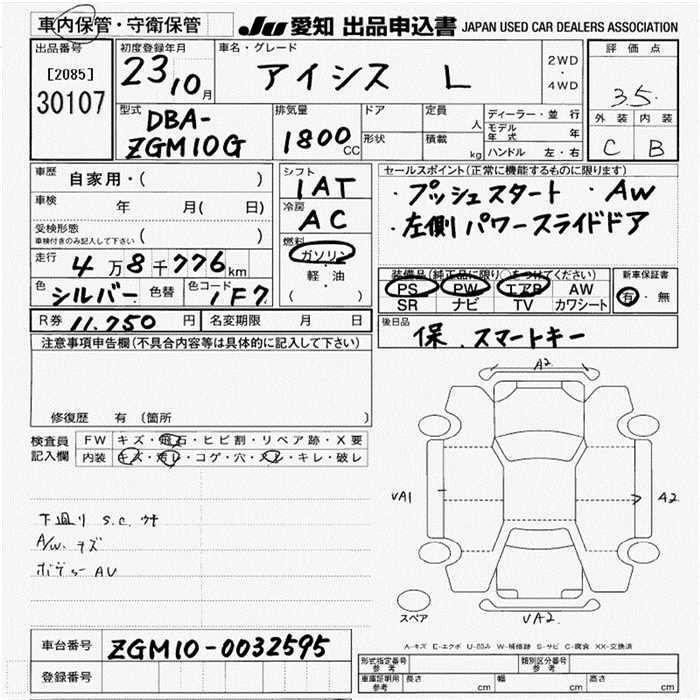 車内保管・守衛保管 JU 愛知 出品申込書 JAPAN USED CAR DEALERS ASSOCIATION
出品番号 [2085] 30107
初度登録年月 23 10月
車名・グレード アイシス L
2WD・4WD
評価点 3.5
外装 内装
C B
型式 DBA-ZGM10G
排気量 1800CC
ドア 形状
定員 人
積載 kg
ディーラー・並行
モデル年式 年
ハンドル 左・右
車歴 自家用・( )
車検 年 月( 日)
受検形態 車検付きのみ記入して下さい ( )
走行 4万8千776km
色 シルバー 色替 色コード 1F7
シフト 1AT
冷房 AC
燃料 ガソリン・軽・油 ( )
セールスポイント(正常に機能するものに限ります)
・プッシュスタート ・AW
・左側パワースライドドア
装備品(純正品に限り○をつけてください)
PS PW エアB AW
SR ナビ TV カワシート
新車保証書 有・無
R券 11,750円 名変期限 月 日
後日品 保.スマートキー
注意事項申告欄(不具合内容等は具体的に記入して下さい)
修復歴 有(箇所 )
検査員記入欄
FW キズ・飛石・ヒビ割・リペア跡・X要
内装 キズ・汚レ・コゲ・穴・スレ・キレ・破レ
下廻り S.C.
A/W. キズ
ボデー AU
A2
VA1
A2
VA2
スペア
A-キズ E-エクボ U-凹み W-補修跡 S-サビ C-腐食 XX-交換済
車台番号 ZGM10-0032595
登録番号
形式指定番号 参考 類別区分番号 参考
車庫証明用 参考 長さ cm 幅 cm 高さ cm